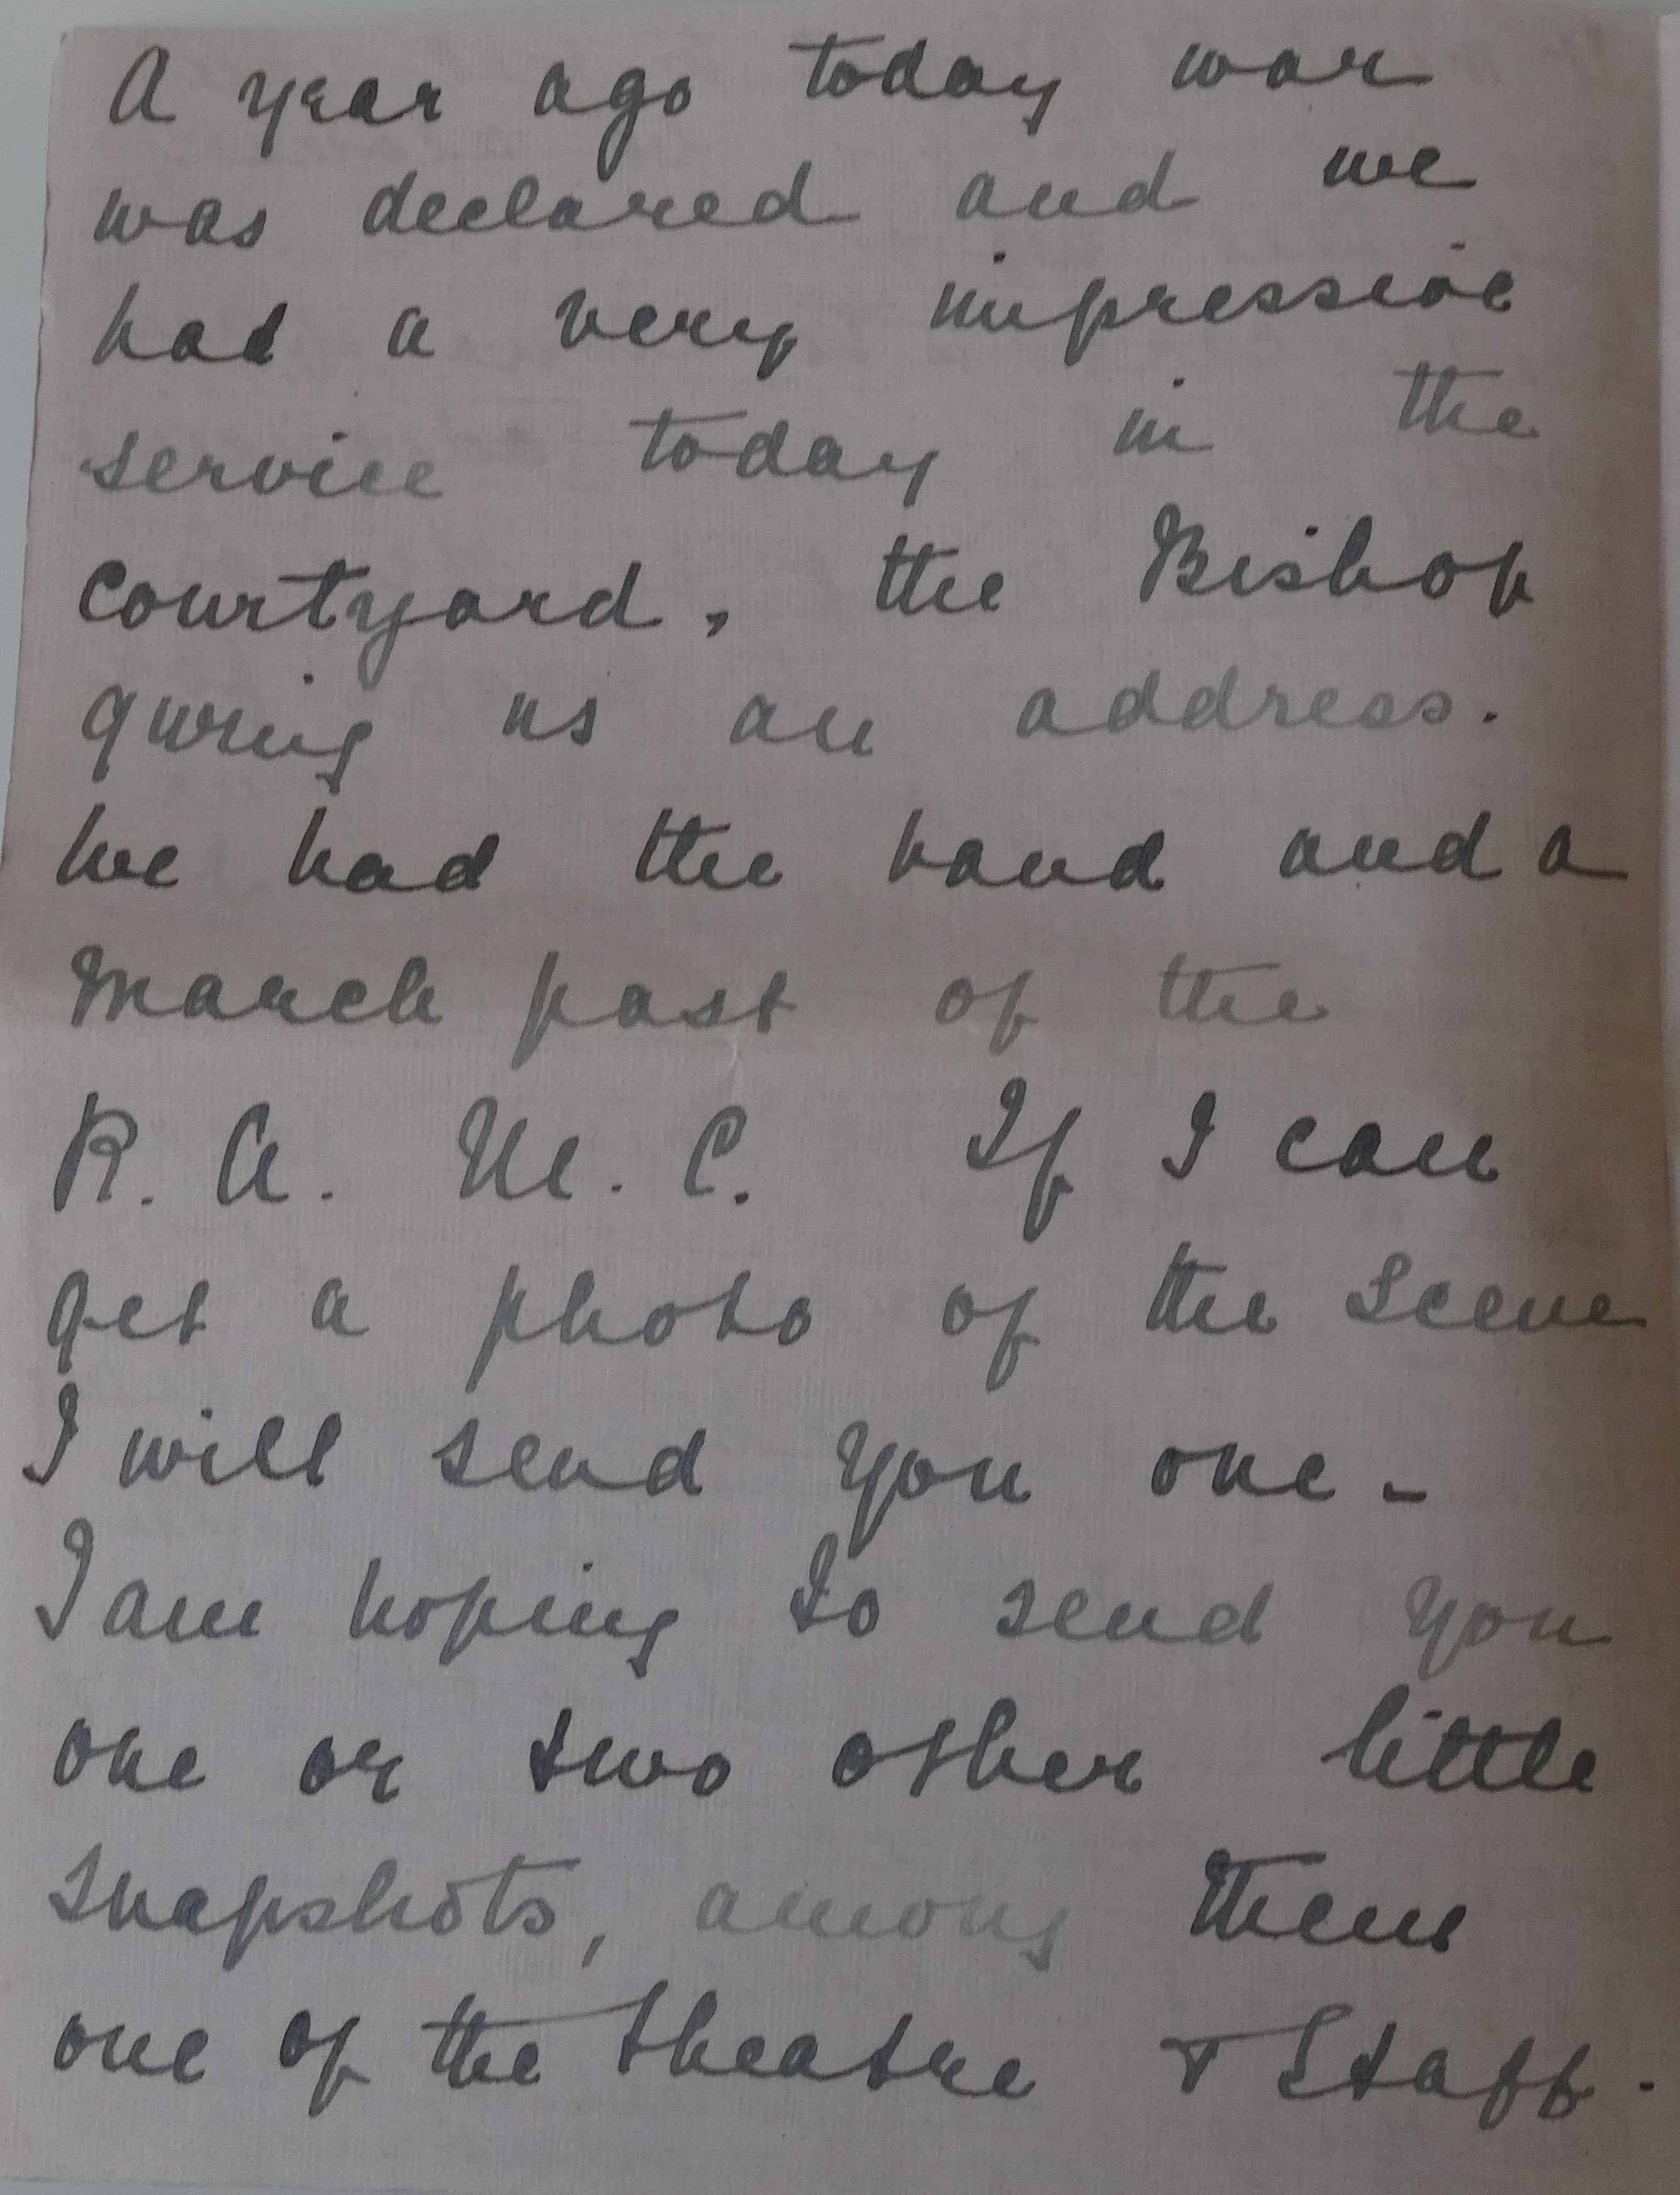 A year ago today war
was declared and we
had a very impressive
service today in the
courtyard, the Bishop
giving us an address.
We had the band and a
March past of the
R. A. M. C. If I can
get a photo of the scene
I will send you one -
I am hoping to send you
one or two other little
snapshots, among them
one of the theatre + Staff.